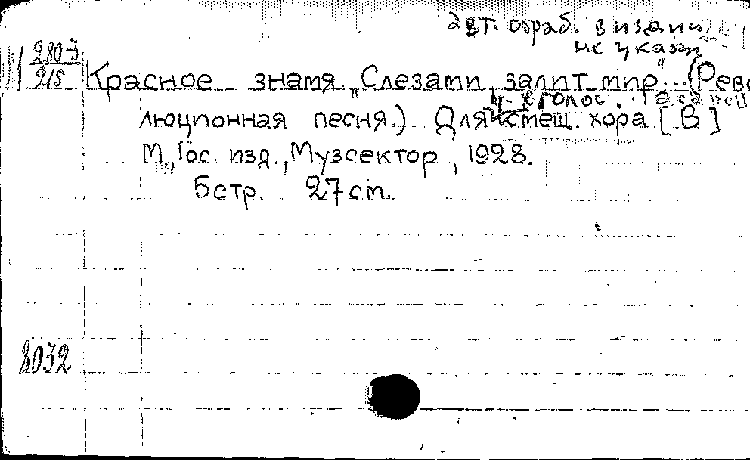 авт. обраб. в издании
не указан
280-3
215
Красное знамя „Слезами залит мир"... (Рево
4-х голос. a capell
люционная песня.) Для смеш. хора [В]
М., Гос. изд., Музсектор, 1928.
6 стр. 27 cm.
8032